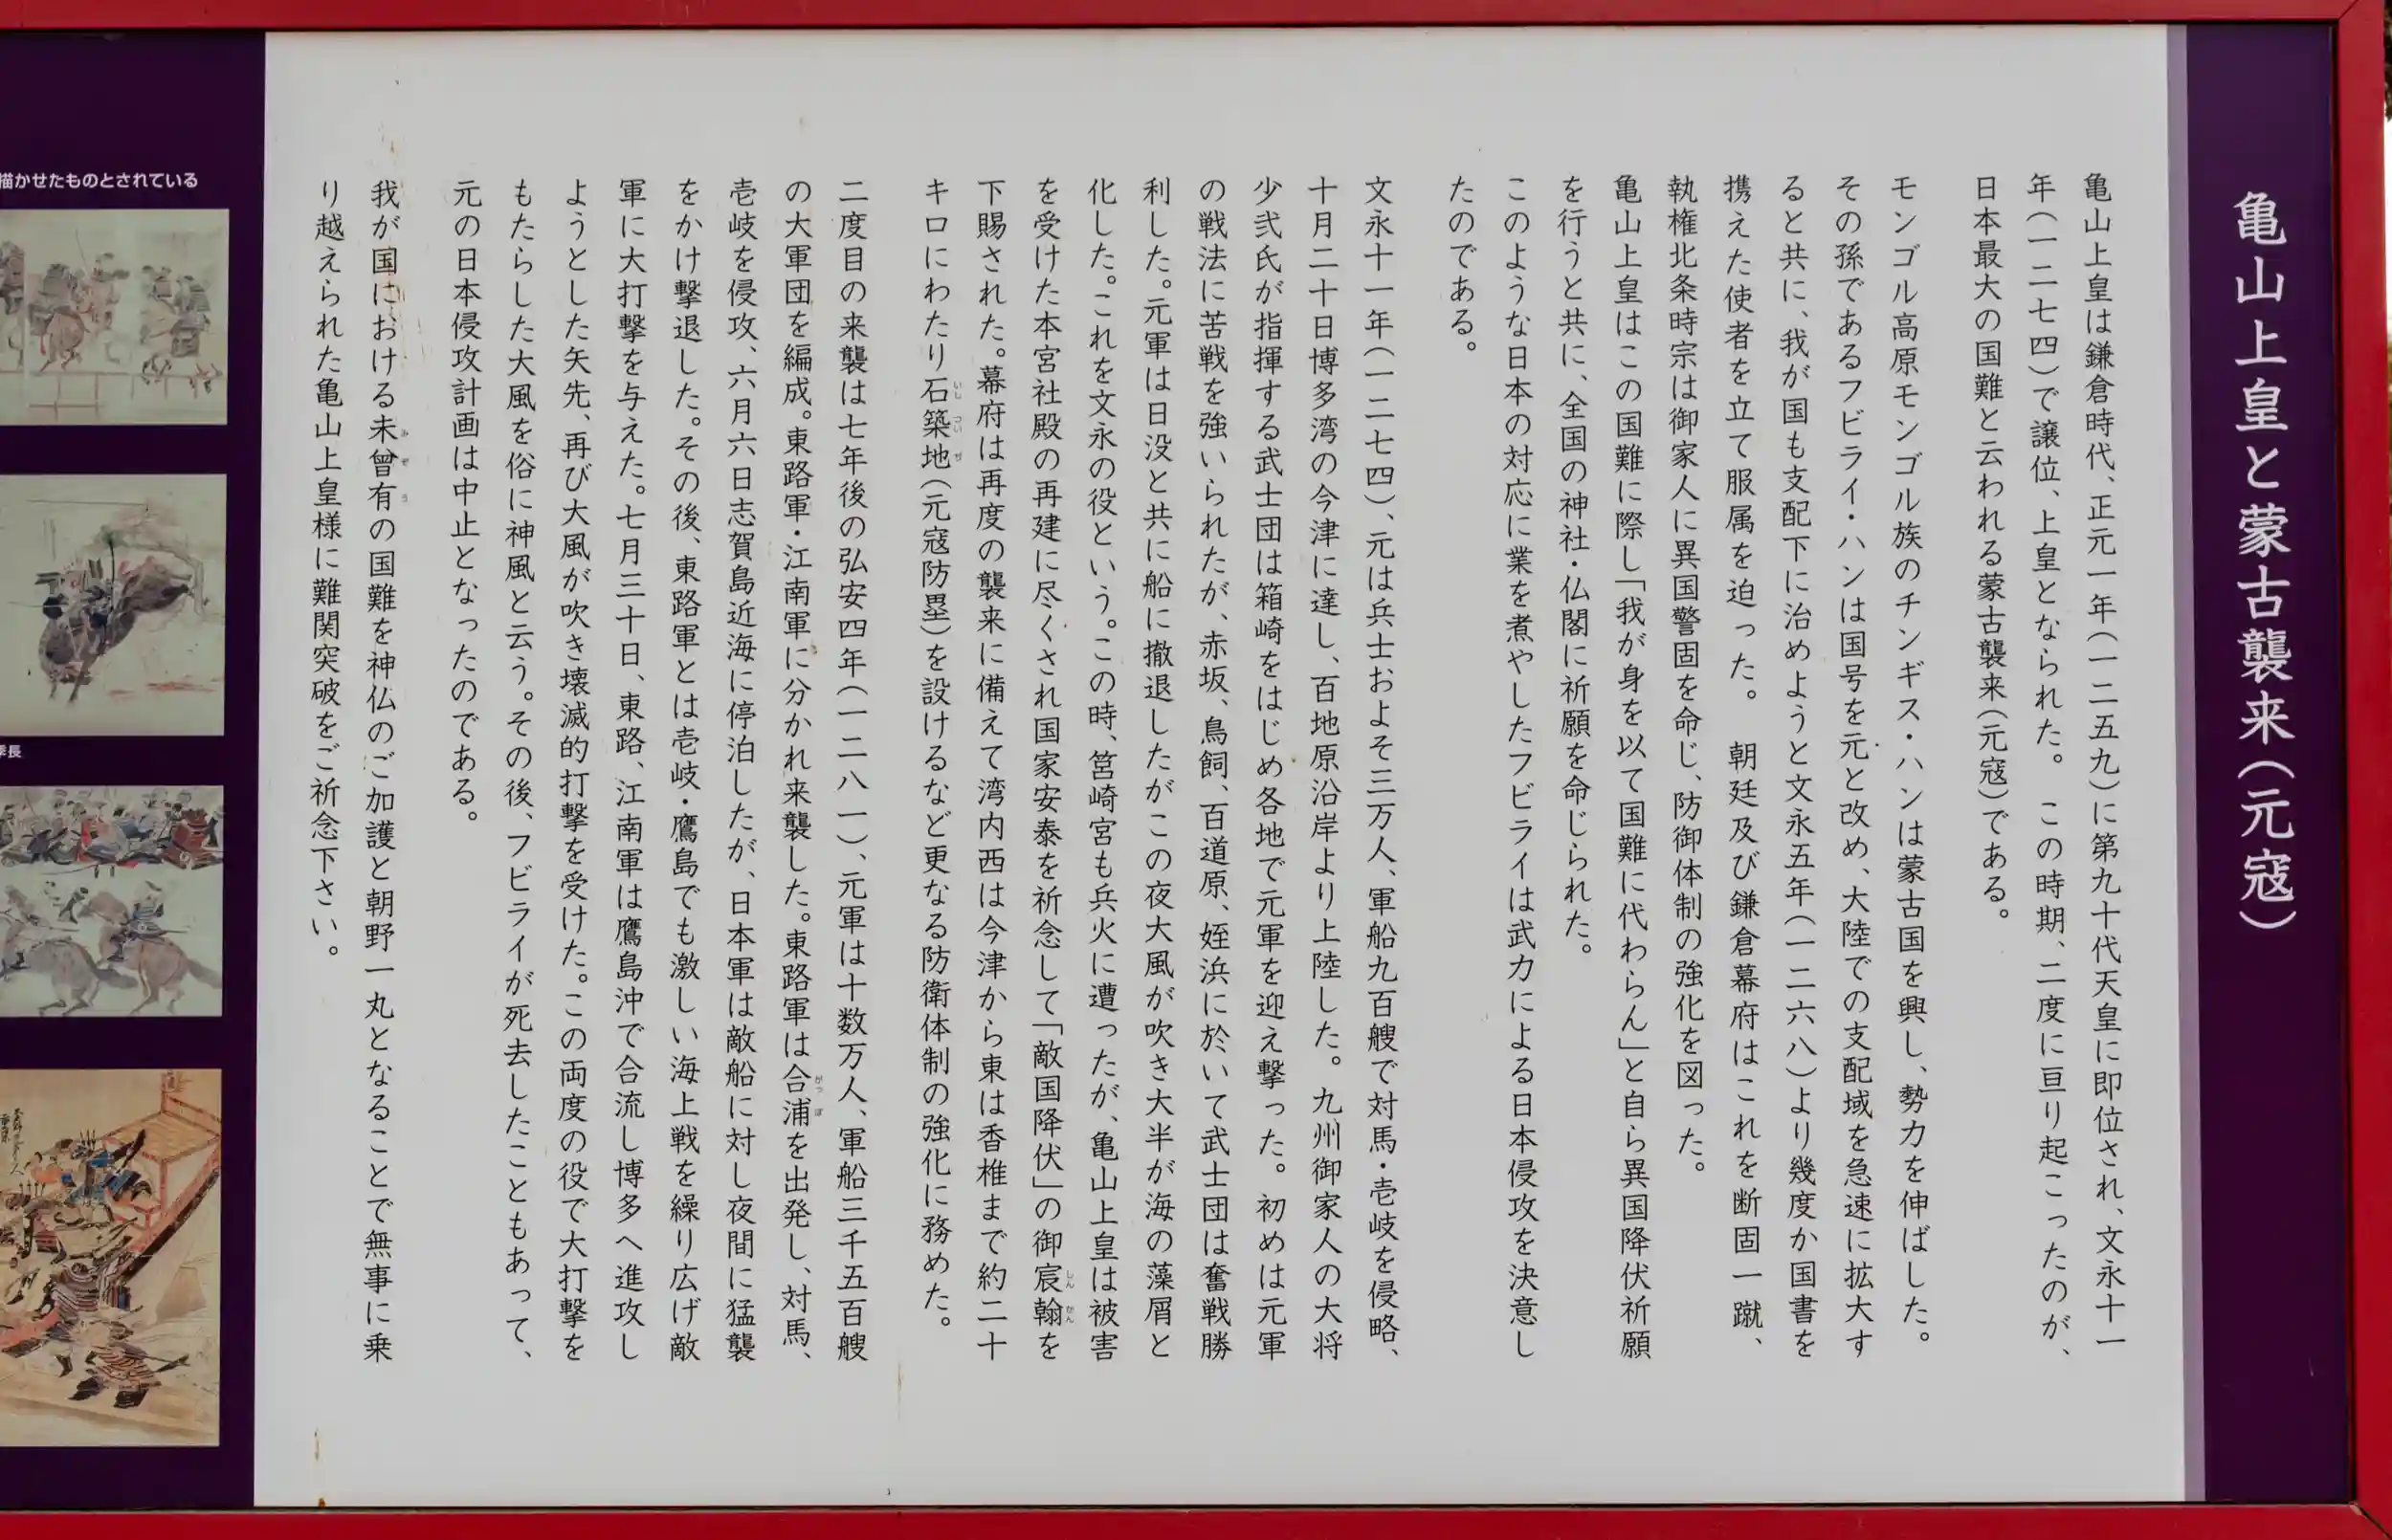 亀山上皇と蒙古襲来(元寇)
亀山上皇は鎌倉時代、正元一年(一二五九)に第九十代天皇に即位され、文永十一
年(一二七四)で譲位、上皇となられた。 この時期、二度に亘り起こったのが、
日本最大の国難と云われる蒙古襲来(元寇)である。
モンゴル高原モンゴル族のチンギス・ハンは蒙古国を興し、勢力を伸ばした。
その孫であるフビライ・ハンは国号を元と改め、大陸での支配域を急速に拡大す
ると共に、我が国も支配下に治めようと文永五年(一二六八)より幾度か国書を
携えた使者を立て服属を迫った。 朝廷及び鎌倉幕府はこれを断固一蹴、
執権北条時宗は御家人に異国警固を命じ、防御体制の強化を図った。
亀山上皇はこの国難に際し「我が身を以て国難に代わらん」と自ら異国降伏祈願
を行うと共に、全国の神社・仏閣に祈願を命じられた。
このような日本の対応に業を煮やしたフビライは武力による日本侵攻を決意し
たのである。
文永十一年(一二七四)、元は兵士およそ三万人、軍船九百艘で対馬・壱岐を侵略、
十月二十日博多湾の今津に達し、百地原沿岸より上陸した。九州御家人の大将
少弐氏が指揮する武士団は箱崎をはじめ各地で元軍を迎え撃った。初めは元軍
の戦法に苦戦を強いられたが、赤坂、鳥飼、百道原、姪浜に於いて武士団は奮戦勝
利した。元軍は日没と共に船に撤退したがこの夜大風が吹き大半が海の藻屑と
化した。これを文永の役という。この時、筥崎宮も兵火に遭ったが、亀山上皇は被害
を受けた本宮社殿の再建に尽くされ国家安泰を祈念して「敵国降伏」の御宸翰しんかんを
下賜された。幕府は再度の襲来に備えて湾内西は今津から東は香椎まで約二十
キロにわたり石築地いしついぢ(元寇防塁)を設けるなど更なる防衛体制の強化に務めた。
二度目の来襲は七年後の弘安四年(一二八一)、元軍は十数万人、軍船三千五百艘
の大軍団を編成。東路軍・江南軍に分かれ来襲した。東路軍は合浦がっぽを出発し、対馬、
壱岐を侵攻、六月六日志賀島近海に停泊したが、日本軍は敵船に対し夜間に猛襲
をかけ撃退した。その後、東路軍とは壱岐・鷹島でも激しい海上戦を繰り広げ敵
軍に大打撃を与えた。七月三十日、東路、江南軍は鷹島沖で合流し博多へ進攻し
ようとした矢先、再び大風が吹き壊滅的打撃を受けた。この両度の役で大打撃を
もたらした大風を俗に神風と云う。その後、フビライが死去したこともあって、
元の日本侵攻計画は中止となったのである。
我が国における未曾有みぞうの国難を神仏のご加護と朝野一丸となることで無事に乗
り越えられた亀山上皇様に難関突破をご祈念下さい。
描かせたものとされている
季長